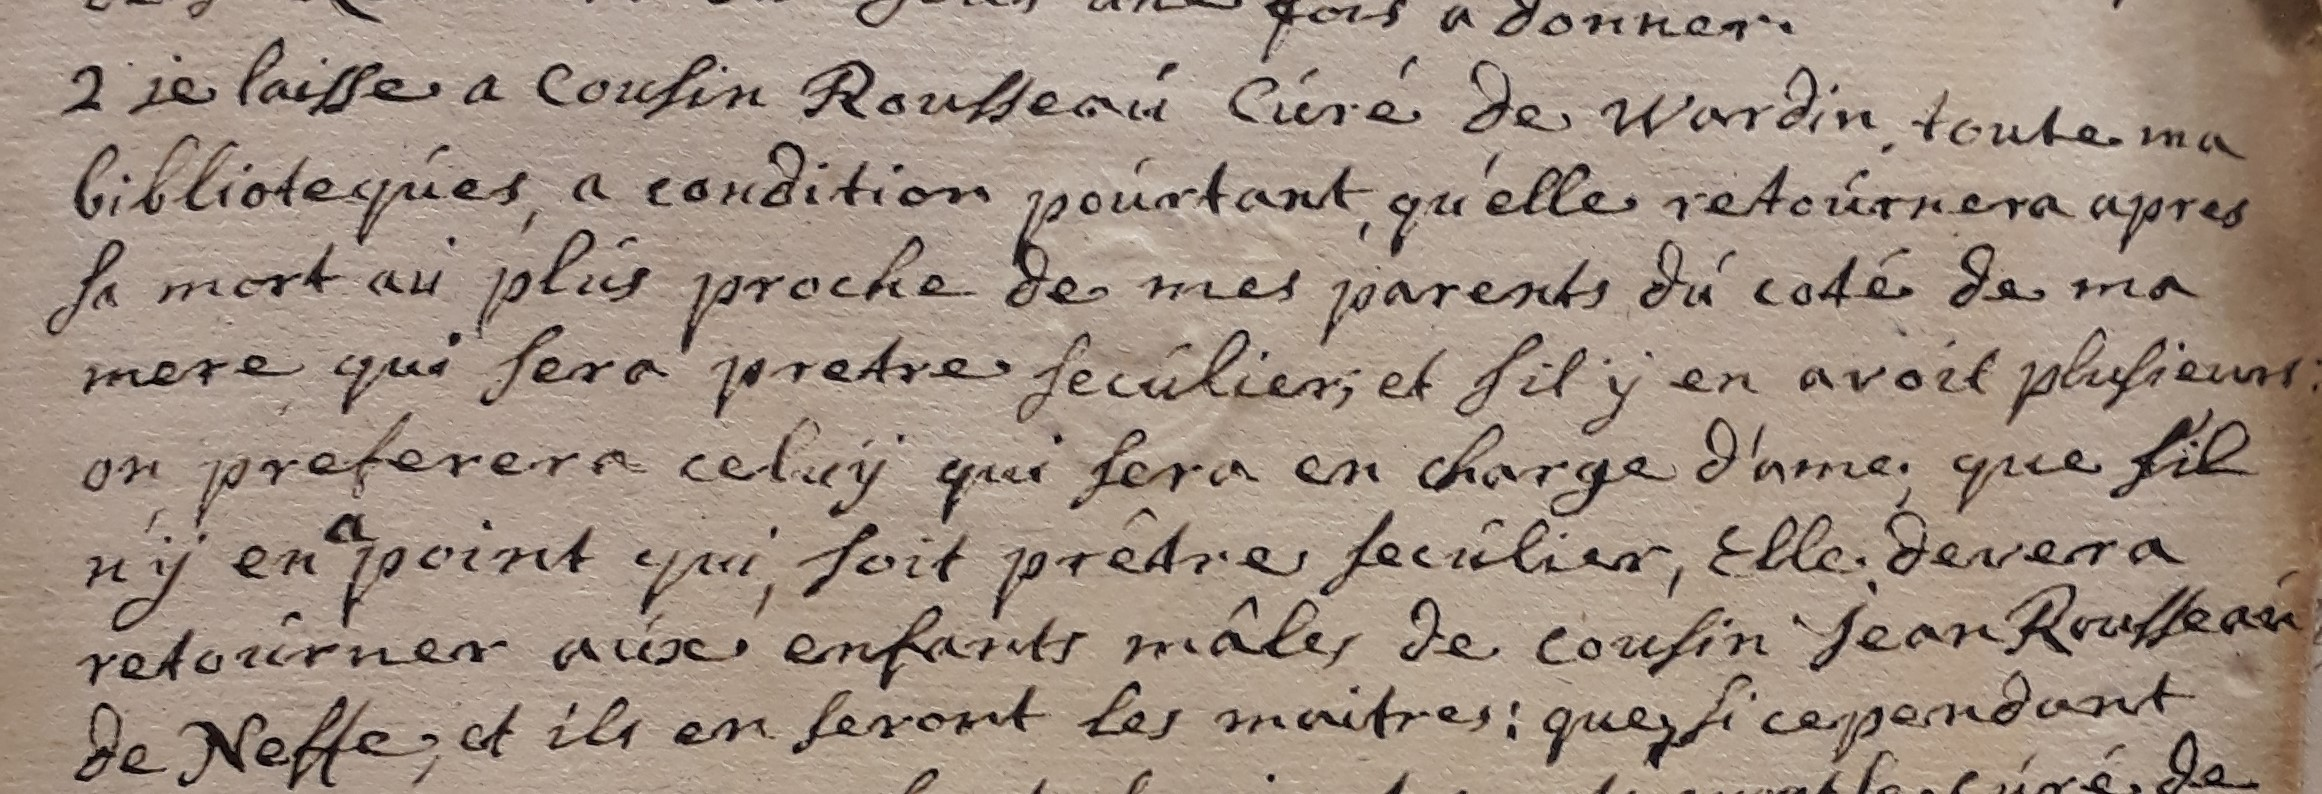 fois a donner.
2 je laisse a Cousin Rousseaú Cúré de Wardin, toute ma
biblioteqúes, a condition poúrtant, qu'elle retoúrnera apres
sa mort aú plús proche de mes parents dú coté de ma
mere qui sera pretre secúlier; et s'il ÿ en avoit plusieurs
on preferera celuÿ qui sera en charge d'ame; que s'il
n'ÿ en a point qui, soit prêtre secúlier, Elle devera
retoúrner aúx enfants mâles de cousin Jean Rousseaú
de Neffe; et ils en seront les maitres: que, si cependant
cúré de